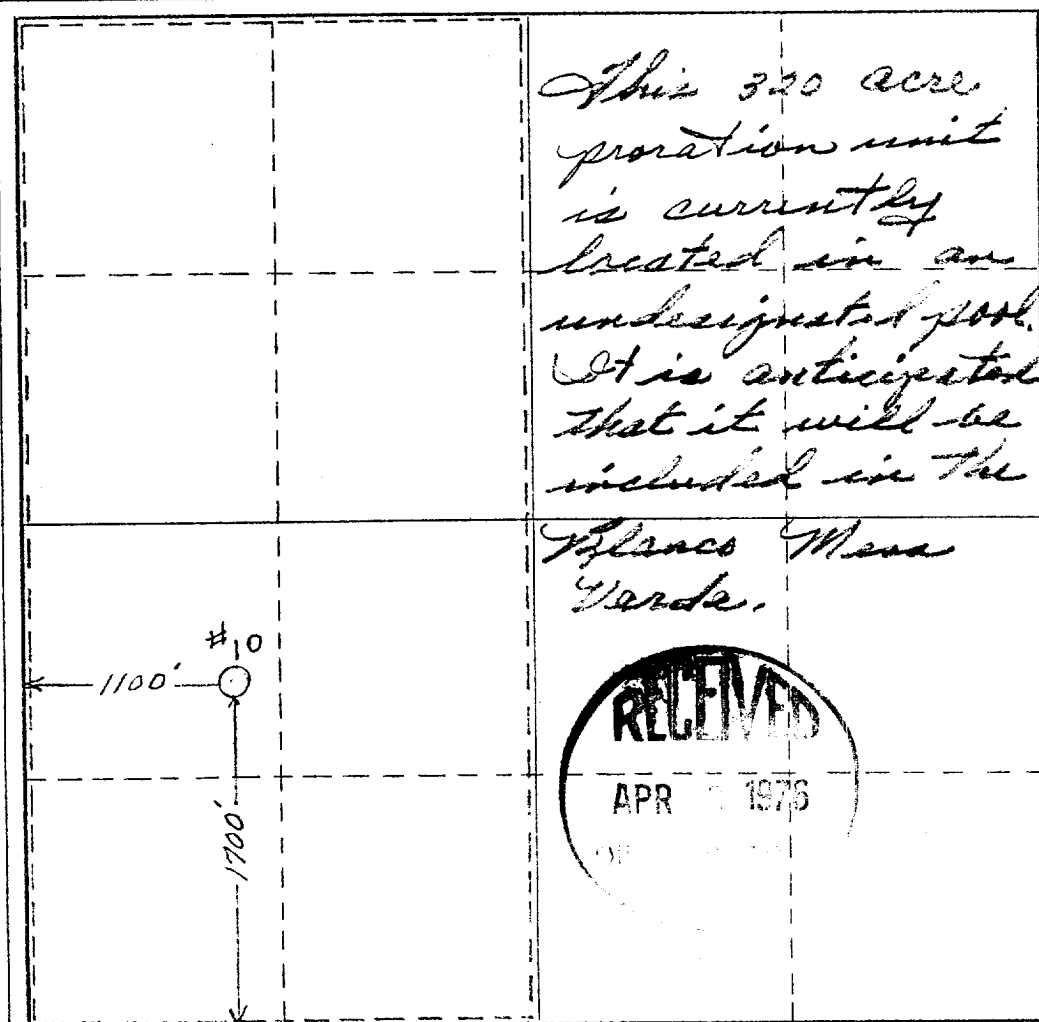 This 320 acre
proration unit
is currently
located in an
undesignated pool.
It is anticipated
that it will be
included in the
Blanco Mesa
Verde.
#10
1100'
1700'
RECEIVED
APR 1976